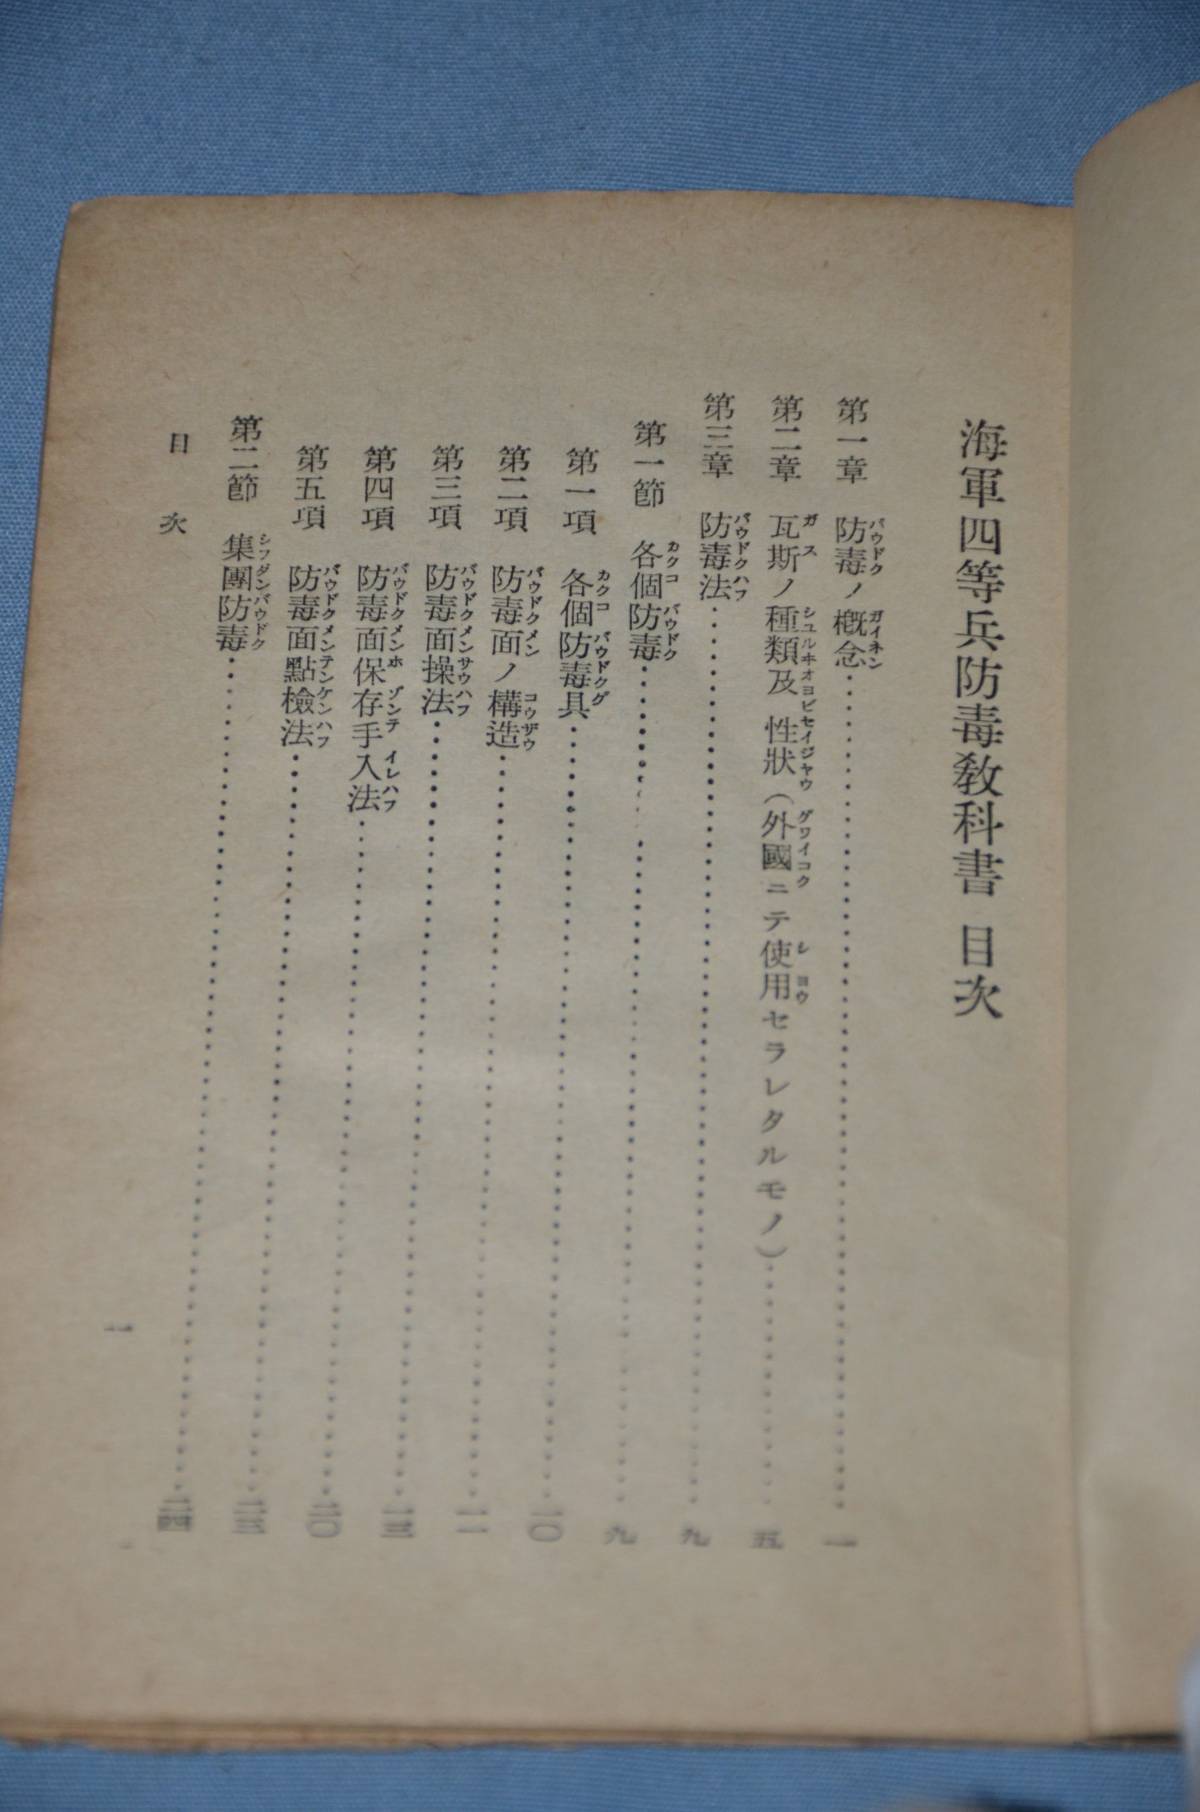 海軍四等兵防毒教科書 目次
第一章 防毒ノ概念 一
第二章 瓦斯ノ種類及性狀(外國ニテ使用セラレタルモノ) 五
第三章 防毒法 九
第一節 各個防毒 九
第一項 各個防毒具 一〇
第二項 防毒面ノ構造 一一
第三項 防毒面操法 一三
第四項 防毒面保存手入法 二〇
第五項 防毒面點檢法 二三
第二節 集團防毒 二四
目次 一